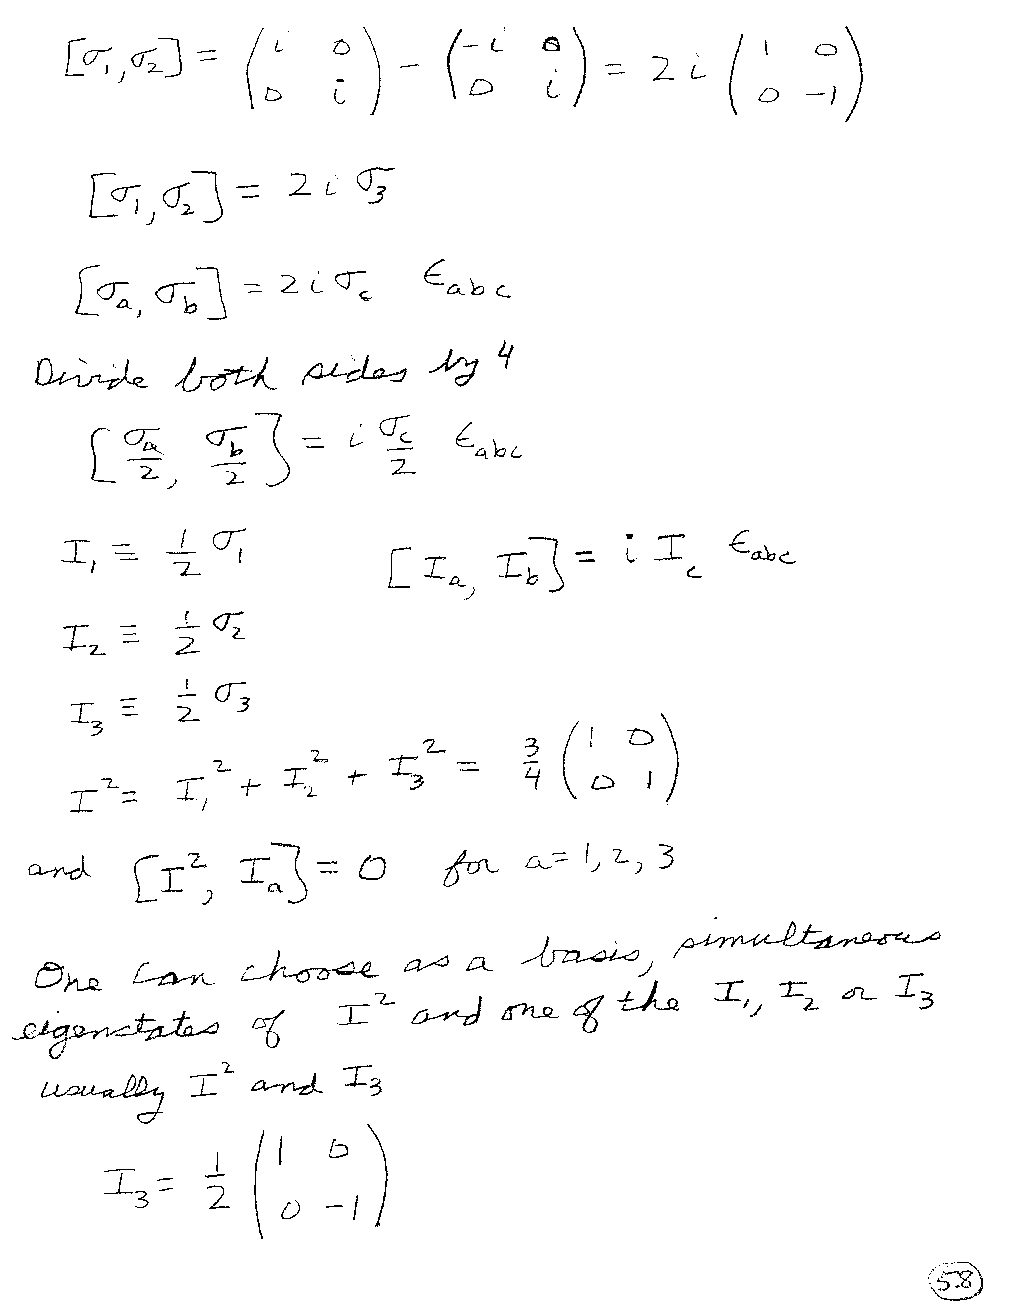 [σ₁, σ₂] = (i 0; 0 i) - (-i 0; 0 i) = 2i (1 0; 0 -1)
[σ₁, σ₂] = 2i σ₃
[σₐ, σ_b] = 2i σ_c ϵ_abc
Divide both sides by 4
[σₐ/2, σ_b/2] = i σ_c/2 ϵ_abc
I₁ ≡ 1/2 σ₁ [Iₐ, I_b] = i I_c ϵ_abc
I₂ ≡ 1/2 σ₂
I₃ ≡ 1/2 σ₃
I² = I₁² + I₂² + I₃² = 3/4 (1 0; 0 1)
and [I², Iₐ] = 0 for a = 1, 2, 3
One can choose as a basis, simultaneous
eigenstates of I² and one of the I₁, I₂ or I₃
usually I² and I₃
I₃ = 1/2 (1 0; 0 -1)
58